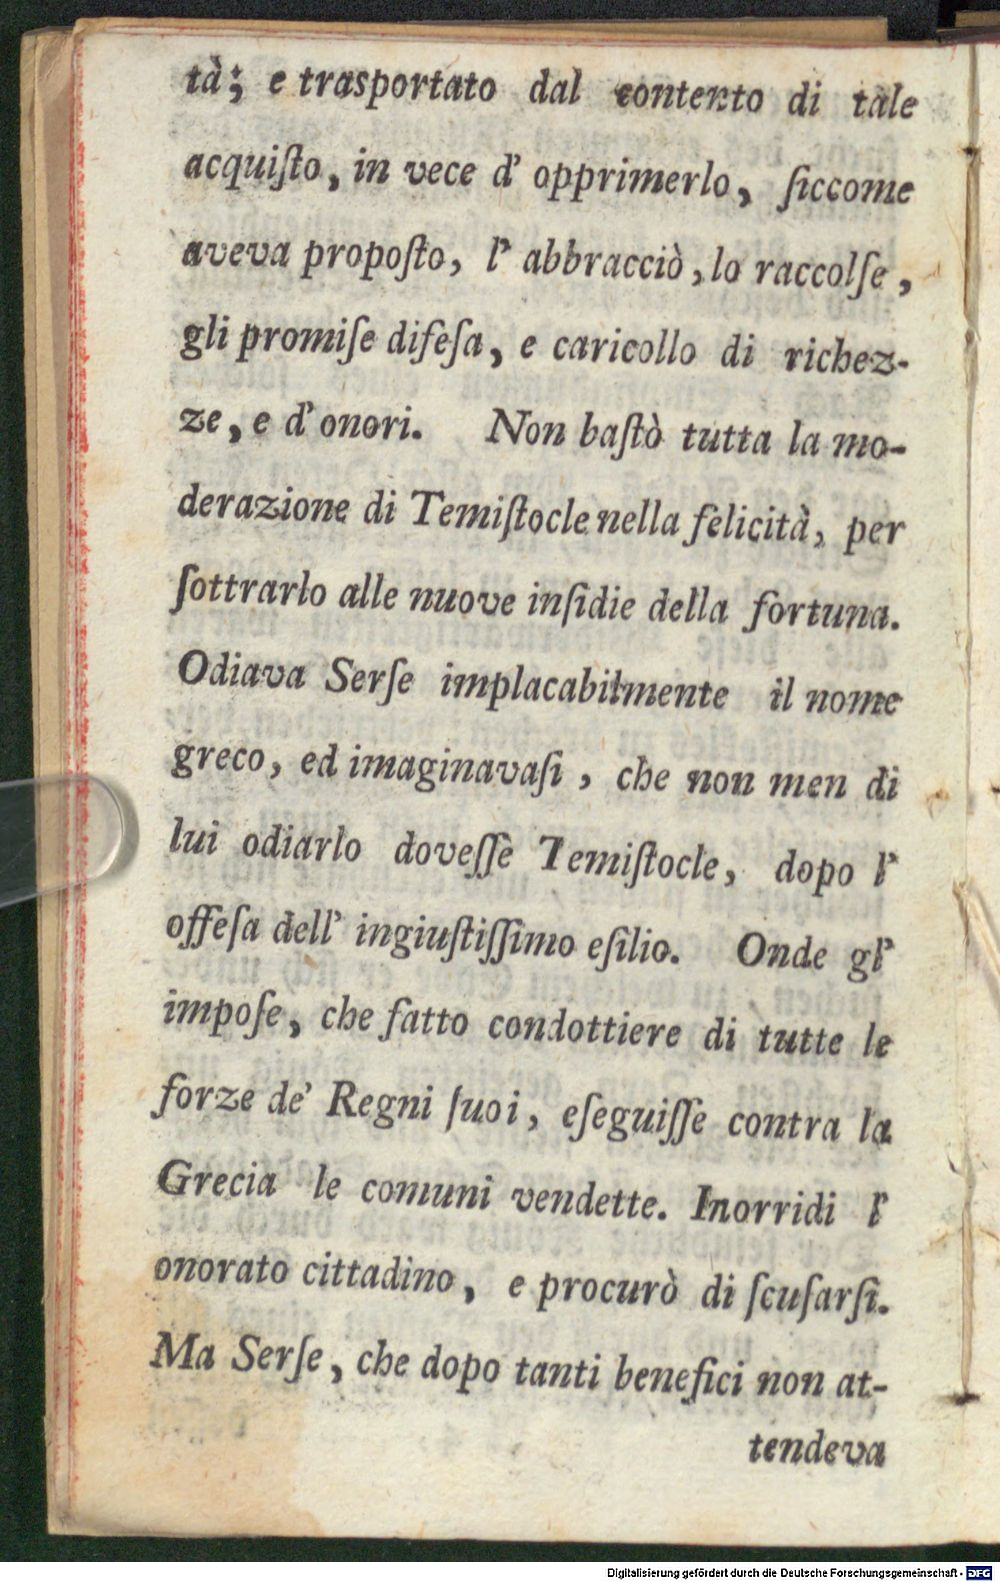 tà; e trasportato dal contento di tale
acquiſto, in vece d' opprimerlo, ſiccome
aveva propoſto, l' abbracciò, lo raccolſe,
gli promiſe difeſa, e caricollo di richez-
ze, e d' onori. Non baſtò tutta la mo-
derazione di Temiſtocle nella felicità, per
ſottrarlo alle nuove inſidie della fortuna.
Odiava Serſe implacabilmente il nome
greco, ed imaginavaſi, che non men di
lui odiarlo doveſſe Temiſtocle, dopo l'
offeſa dell' ingiuſtiſſimo eſilio. Onde gl'
impoſe, che fatto condottiere di tutte le
forze de' Regni ſuoi, eſeguiſſe contra la
Grecia le comuni vendette. Inorridi l'
onorato cittadino, e procurò di ſcuſarſi.
Ma Serſe, che dopo tanti benefici non at-
tendeva
Digitalisierung gefördert durch die Deutsche Forschungsgemeinschaft - DFG